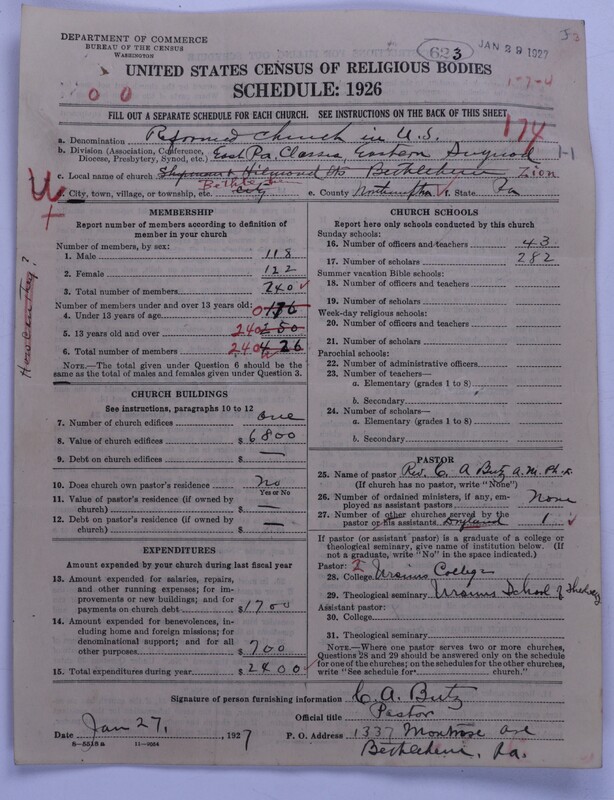 DEPARTMENT OF COMMERCE
BUREAU OF THE CENSUS
WASHINGTON
623
JAN 29 1927
UNITED STATES CENSUS OF RELIGIOUS BODIES
SCHEDULE: 1926
0 0
1-7-4
FILL OUT A SEPARATE SCHEDULE FOR EACH CHURCH. SEE INSTRUCTIONS ON THE BACK OF THIS SHEET
174
a. Denomination Reformed Church in U.S.
b. Division (Association, Conference, Diocese, Presbytery, Synod, etc.) East Pa. Classis, Eastern Synod
1-1
c. Local name of church Bethlehem Zion
d. City, town, village, or township, etc. Bethlehem City e. County Northampton f. State Pa
MEMBERSHIP
Report number of members according to definition of
member in your church
Number of members, by sex:
1. Male 118
2. Female 122
3. Total number of members 240
Number of members under and over 13 years old:
4. Under 13 years of age 0 176
5. 13 years old and over 240 250
6. Total number of members 240 426
NOTE.—The total given under Question 6 should be the
same as the total of males and females given under Question 3.
CHURCH BUILDINGS
See instructions, paragraphs 10 to 12
7. Number of church edifices one
8. Value of church edifices $ 6800
9. Debt on church edifices $ —
10. Does church own pastor's residence No
Yes or No
11. Value of pastor's residence (if owned by
church) $ —
12. Debt on pastor's residence (if owned by
church) $ —
EXPENDITURES
Amount expended by your church during last fiscal year
13. Amount expended for salaries, repairs,
and other running expenses; for im-
provements or new buildings; and for
payments on church debt $ 1700
14. Amount expended for benevolences, in-
cluding home and foreign missions; for
denominational support; and for all
other purposes $ 700
15. Total expenditures during year $ 2400
CHURCH SCHOOLS
Report here only schools conducted by this church
Sunday schools:
16. Number of officers and teachers 43
17. Number of scholars 282
Summer vacation Bible schools:
18. Number of officers and teachers
19. Number of scholars
Week-day religious schools:
20. Number of officers and teachers
21. Number of scholars
Parochial schools:
22. Number of administrative officers
23. Number of teachers—
a. Elementary (grades 1 to 8)
b. Secondary
24. Number of scholars—
a. Elementary (grades 1 to 8)
b. Secondary
PASTOR
25. Name of pastor Rev. C. A. Butz A.M. Ph.D.
(If church has no pastor, write "None")
26. Number of ordained ministers, if any, em-
ployed as assistant pastors None
27. Number of other churches served by the
pastor or his assistants Dryland 1
If pastor (or assistant pastor) is a graduate of a college or
theological seminary, give name of institution below. (If
not a graduate, write "No" in the space indicated.)
Pastor:
28. College Ursinus College
29. Theological seminary Ursinus School of Theology
Assistant pastor:
30. College
31. Theological seminary
NOTE.—Where one pastor serves two or more churches,
Questions 28 and 29 should be answered only on the schedule
for one of the churches; on the schedules for the other churches,
write "See schedule for church."
Signature of person furnishing information C. A. Butz
Official title Pastor
Date Jan 27, 1927 P. O. Address 1337 Montrose Ave
Bethlehem, Pa.
8-5518 a